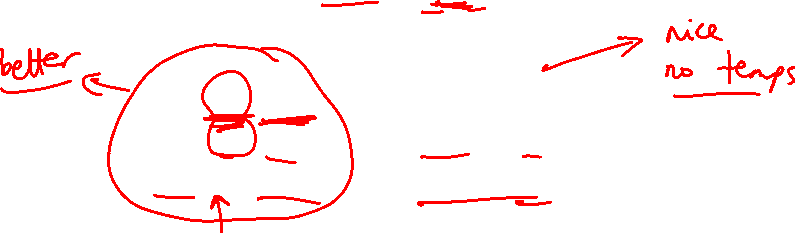 better
nice
no temps